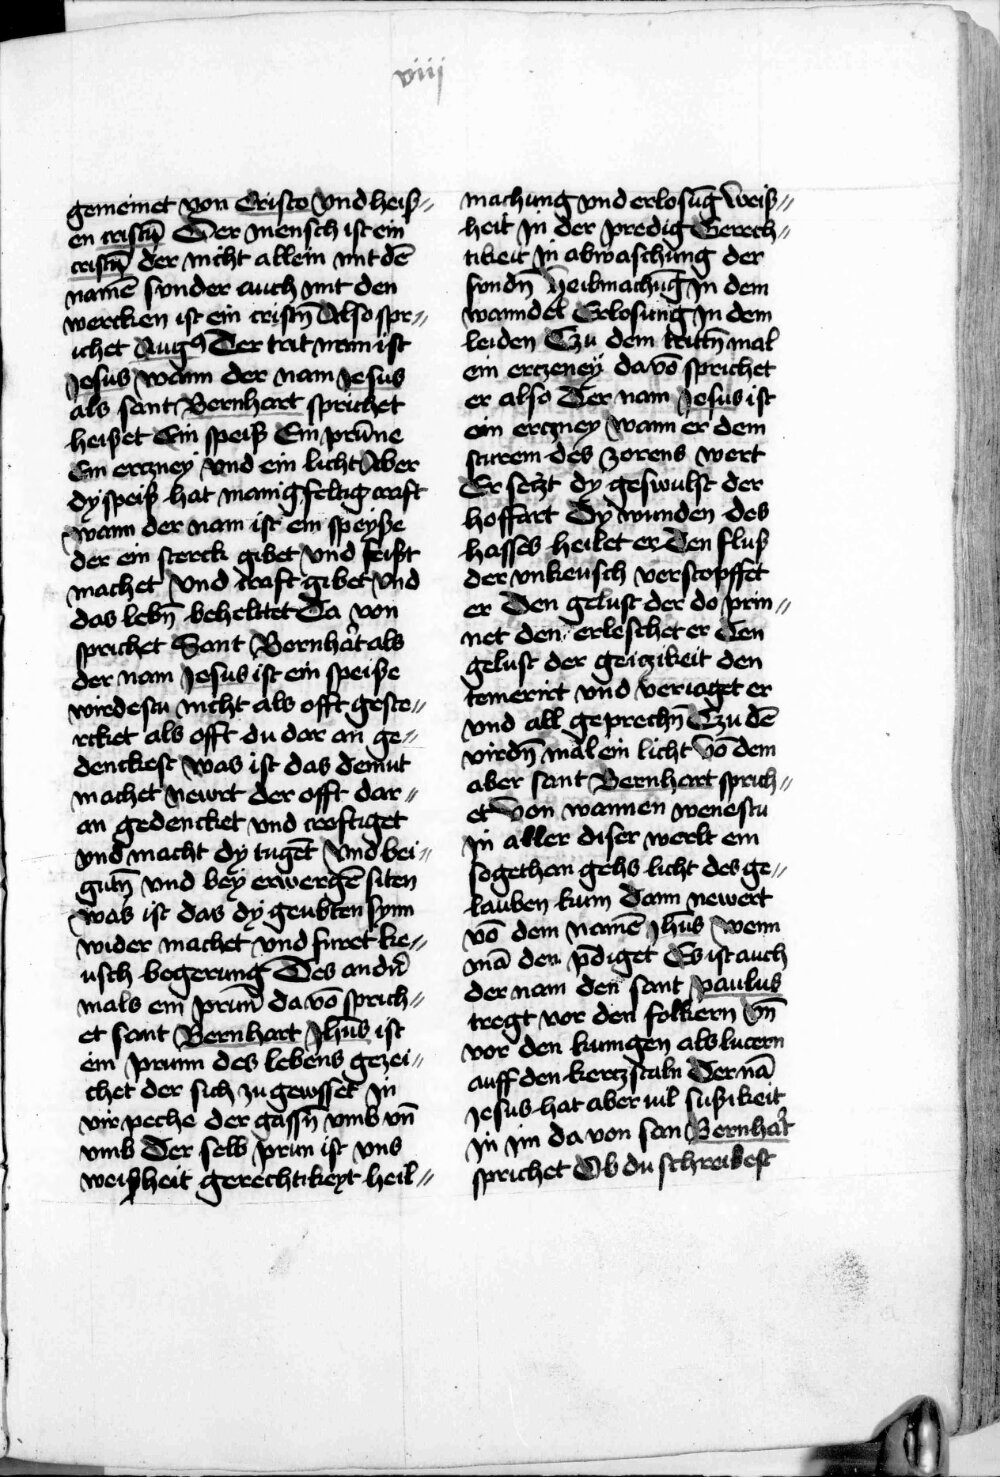 viij
gemeinet von Cristo Vnd heiß〃
en cristñ Der mensch ist ein
cristñ der nicht allein mit dē
namē sunder auch mit den
wercken ist ein cristñ Also spr〃
ichet Augꝰ Der trit nam ist
Jesus wann der nam Jesus
als sant Bernhart sprichet
heißet Ein speiß Ein prūne
Ein erczney Vnd ein licht Aber
dy speiß hat manigfeltig craft
wann der nam ist ein speyße
der ein sterck gibet Vnd feißt
machet Vnd craft gibet Vnd
das lebñ beheltet Da von
sprichet Sant Bernhart als
der nam Jesus ist ein speiße
wirdestu nicht als offt geste〃
rcket als offt du dar an ge〃
denckest Was ist das demut
machet newrt der offt dar〃
an gedencket vnd creftiget
vnd macht dy tugēt Vnd bei〃
gutñ vnd bey erwergē siten
was ist das dy geubten synn
wider machet vnd furet ke〃
usch begerung Des andñ
mals ein prūn da vō sprich〃
et sant Bernhart Jhūs ist
ein prunn des lebens gezei〃
chet der sich zu gewsset in
vir peche der gassñ vmb vñ
vmb Der selb prun ist vns
weißheit gerechtikeyt heil〃
machung vnd erlosūg Weiß〃
heit in der predig Gerech〃
tikeit in abwaschung der
sundñ Heilmachūg in dem
wanndel Erlosung in dem
leiden Czu dem trittñ mal
ein erczeney da vō sprichet
er also Der nam Jesus ist
ein erczney Wann er dem
sturem des zorens wert
Er setzt dy geswulst der
hoffart Dy wunden des
hasses heilet er Den fluß
der vnkeusch verstopffet
er Den gelust der do prin〃
net den erleschet er Den
gelust der geiczikeit den
temerirt vnd veriaget er
vnd all geprechñ Czu dē
virdñ mal ein licht Vō dem
aber sant Bernhart sprich〃
et Von wannen wenestu
in aller diser werlt ein
sogethan gehs licht des ge〃
lauben kum dann newert
vō dem namē Jhūs Wenn
mā den p̄diget Es ist auch
der nam den sant paulus
tregt vor den folkern Vñ
vor den kunigen als lucern
auff den kerczstaln Der nā
Jesus hat aber vil sußikeit
in im da von san Bernhart
sprichet Ob du schreibest